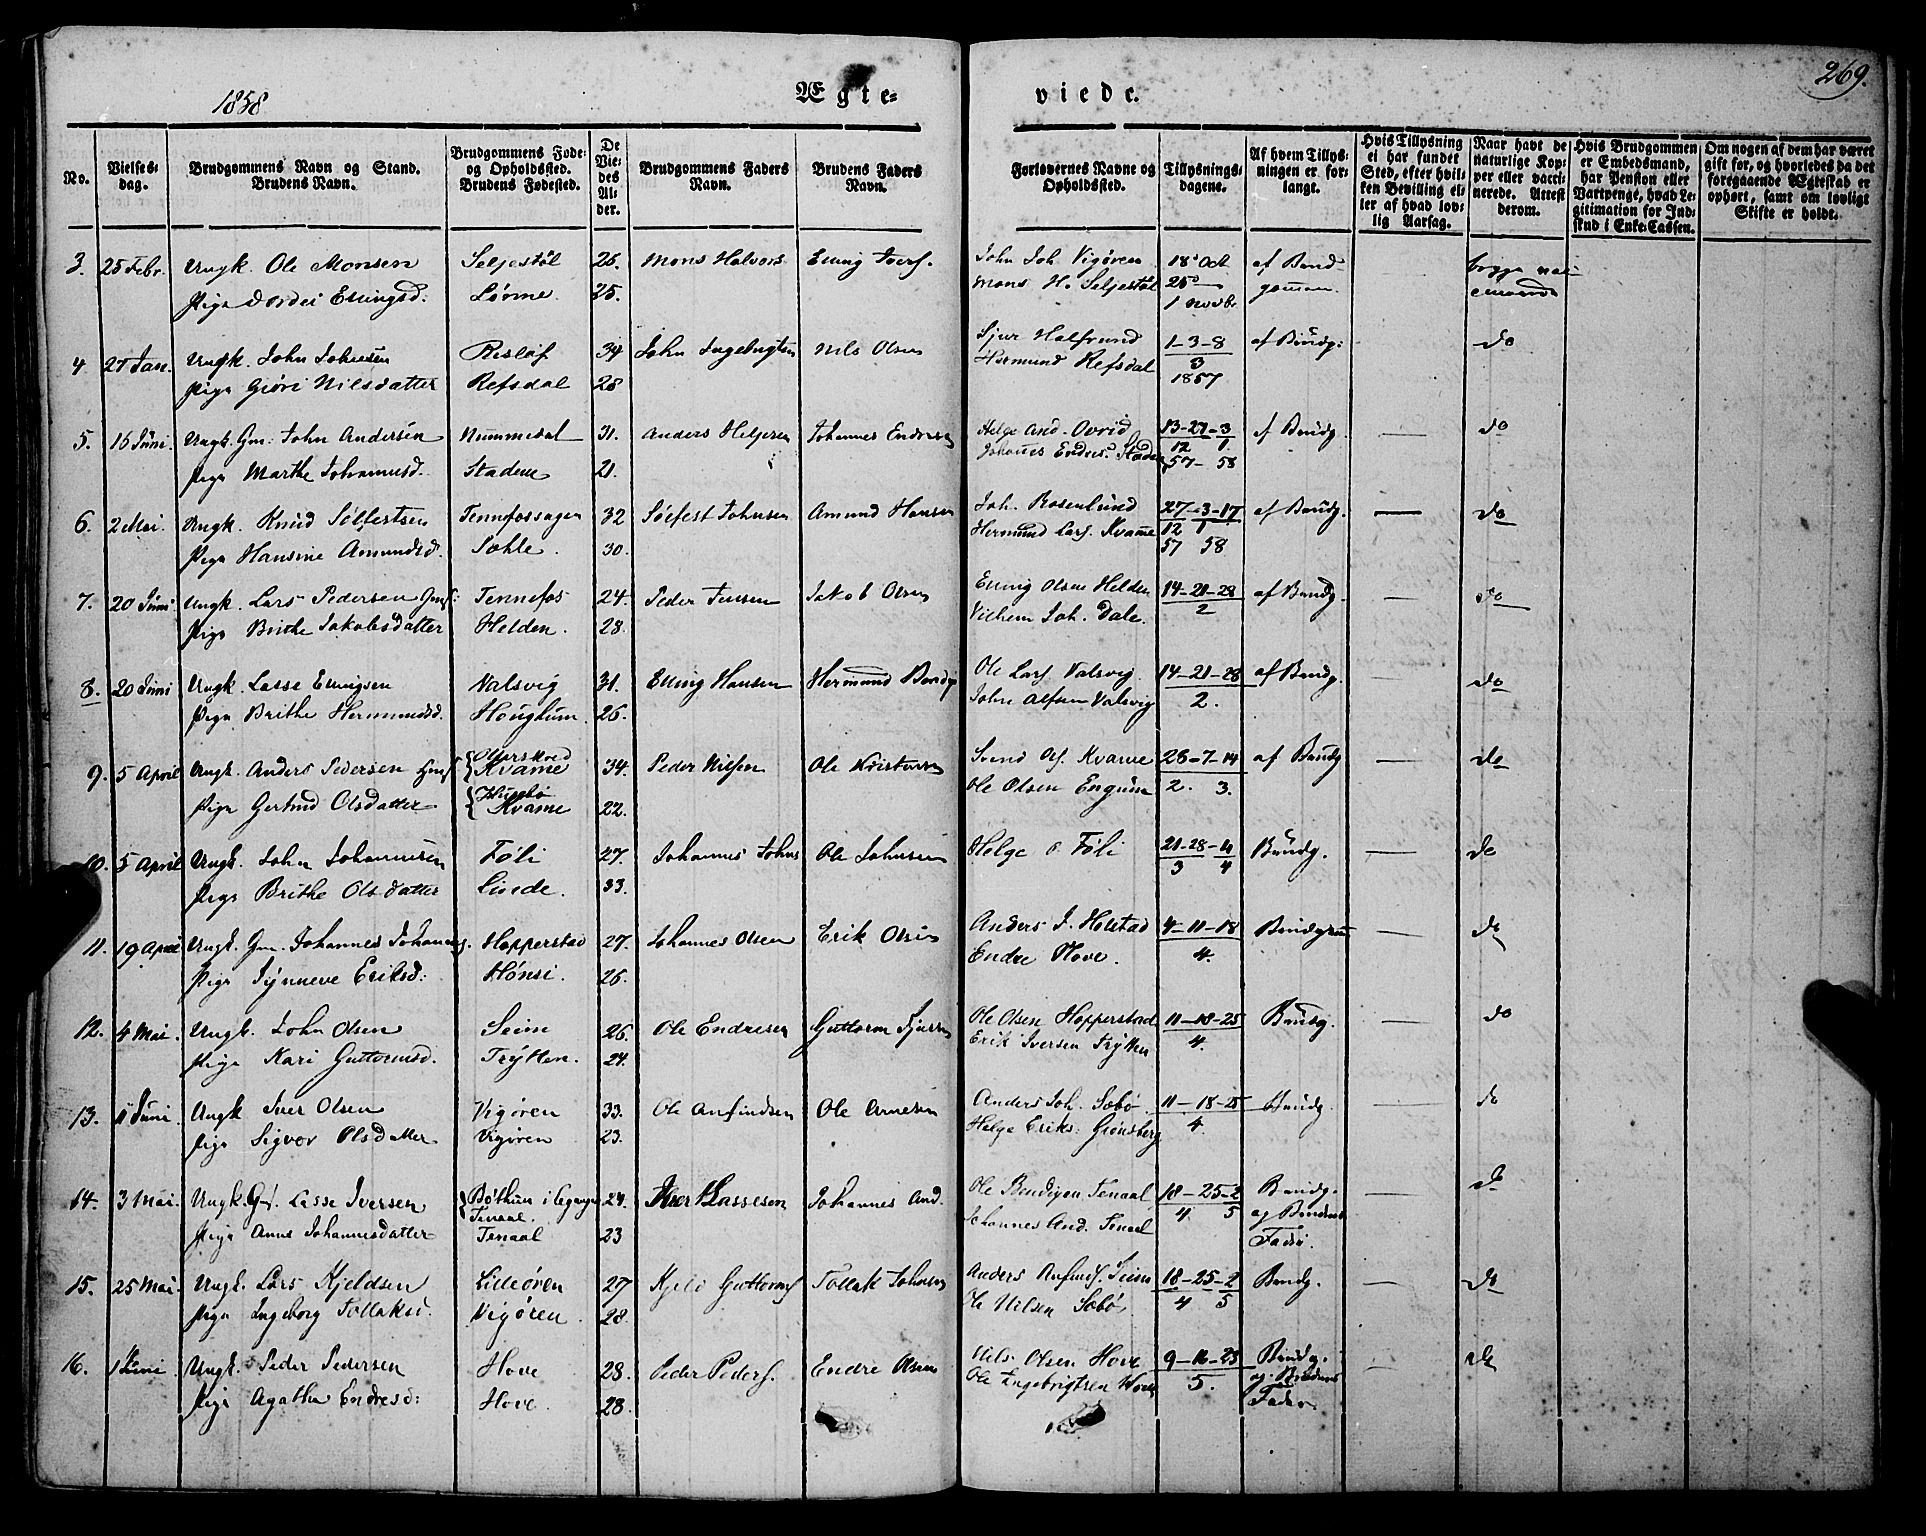 1858
Ægte=
viede.
269.
No.
Vielses-
dag.
Brudgommens Navn og Stand.
Brudens Navn.
Brudgommens Føde-
og Opholdssted.
Brudens Fødested.
De
Vie-
des
Al-
der.
Brudgommens Faders
Navn.
Brudens Faders
Navn.
Forlovernes Navne og
Opholdssted.
Tillysnings-
dagene.
Af hvem Tillys-
ningen er for-
langt.
Hvis Tillysning
ei har fundet
Sted, efter hvil-
ken Bevilling el-
ler af hvad lov-
lig Aarsag.
Naar havt de
naturlige Kop-
per eller vacci-
nerede. Attest
derom.
Hvis Brudgommen
er Embedsmand,
har Pension eller
Vartpenge, hvad Le-
gitimation for Ind-
skud i Enke-Cassen.
Om nogen af dem har været
gift før, og hvorledes da det
foregaaende Ægteskab er
ophørt, samt om lovligt
Skifte er holdt.
3. 25 Febr. Ungk. Ole Monsen Seljestøl 25. Mons Halvors Elling Ivers. John Joh. Vigøren 18 Oct af Brud-
Pige Dordei Ellingsd. Lövme. 25. Mons H. Seljestøl 25 gommen
1 Novbr
4 27 Jan. Ungk. John Johnsen 34 John Ingebrigtsen Nils Olsen Sjur Halfrund 1-3-8 af Brudg: do
Pige Giøri Nilsdatter Refsdal 28 Hermund Refsdal 3
1857
5. 16 Juni. Ungk. Gm: John Andersen Nummedal 31. Anders Helgesen Johannes Endresen Helge And. Ovrid 13-27-3 af Brudg. — do
Pige Marthe Johannesd. Stadene 21. Johannes Endres. 12 1.
57- 58
6. 2 Mai. Ungk. Knud Sölfestsen Tennefossagen 32 Sölfest Johnsen Amund Hansen Joh. Rosenlund 27-3-17 af Brudg. — do
Pige Hansine Amundsd. Sæhle. 30. Hermund Lars. Kvamme 12 1
57 58
7. 20 Juni Ungk. Lars Pedersen Tennefos 24. Peder Jensen Jakob Olsen Elling Olsen Helden 14-21-28 af Brudg. — do
Pige Brithe Jakobsdatter Helden. 28. Vilhem Joh. Dale. 2
8. 20 Juni Ungk. Lasse Ellingsen Valsvig 31. Elling Hansen Hermund Ole Lars. Valsvig 14-21-28 af Brudg. — do
Pige Brithe Hermundsd. Houglum. 26. John Alfsen Valsvig 2.
9. 5 April Ungk. Anders Pedersen Kvame 34. Peder Nilsen Ole Kristensen Svend Kvame 28-7-14 af Brudg — do
Pige Gertrud Olsdatter Kvame 22. Ole Olsen Engum 2. 3.
10. 5 April Ungk. John Johannesen Føli 27. Johannes Johns Ole Johnsen Helge O Føli 21-28-4 Brudg. — do
Pige Brithe Olsdatter Linde. 33. 3 4
11. 19 April Ungk. Gm. Johannes Johannes. Hopperstad 27. Johannes Olsen Erik Olsen Anders J. Holstad 4-11-18 — do
Pige Synneve Eriksd: Hønsi. 26. Endre Hove. 4.
12. 4 Mai. Ungk. John Olsen Seim 26. Ole Endresen Guttorm Ole Olsen Hopperstad 11-18-25 Brudg. — do
Pige Kari Guttormsd. Trytten. 24. Erik Iversen Trytten 4.
13. 11 Juni. Ungk Iver Olsen Vigøren 33. Ole Anfindsen Ole Arnesen Anders Joh. Sæbø. 11-18-25 Brudg. — do
Pige Sigvor Olsdatter Vigøren 23. Helge Eriks. Grønsberg 4.
14. 3 Mai. Ungk. Lasse Iversen Böthun i 24. Iver Lassesen Johannes And. Ole Bendigsen Tenaal 18-25-2 Brudg. — do
Tenaal. 4 5 og Brudens
Pige Anne Johannesdatter Tenaal 23 Johannes And. Tenaal Fader.
15. 25 Mai. Ungk. Lars Kjeldsen Lilleøren 27 Kjeld Guttorms Tollak Johnsen Anders Anfinds. Seim 18-25-2 Brudg. — do
Pige Ingeborg Tollaksd. Vigøren. 28. Ole Nilsen Sæbø 4 5
16. 1 Juni Ungk. Peder Pedersen Hove 28. Peder Peders. Endre Olsen Nils Olsen Hove 9-16-23 Brudg. — do
Pige Agathe Endresd: Hove. 28. Ole Ingebrigtsen Hove 5. og Brudens
Fader.